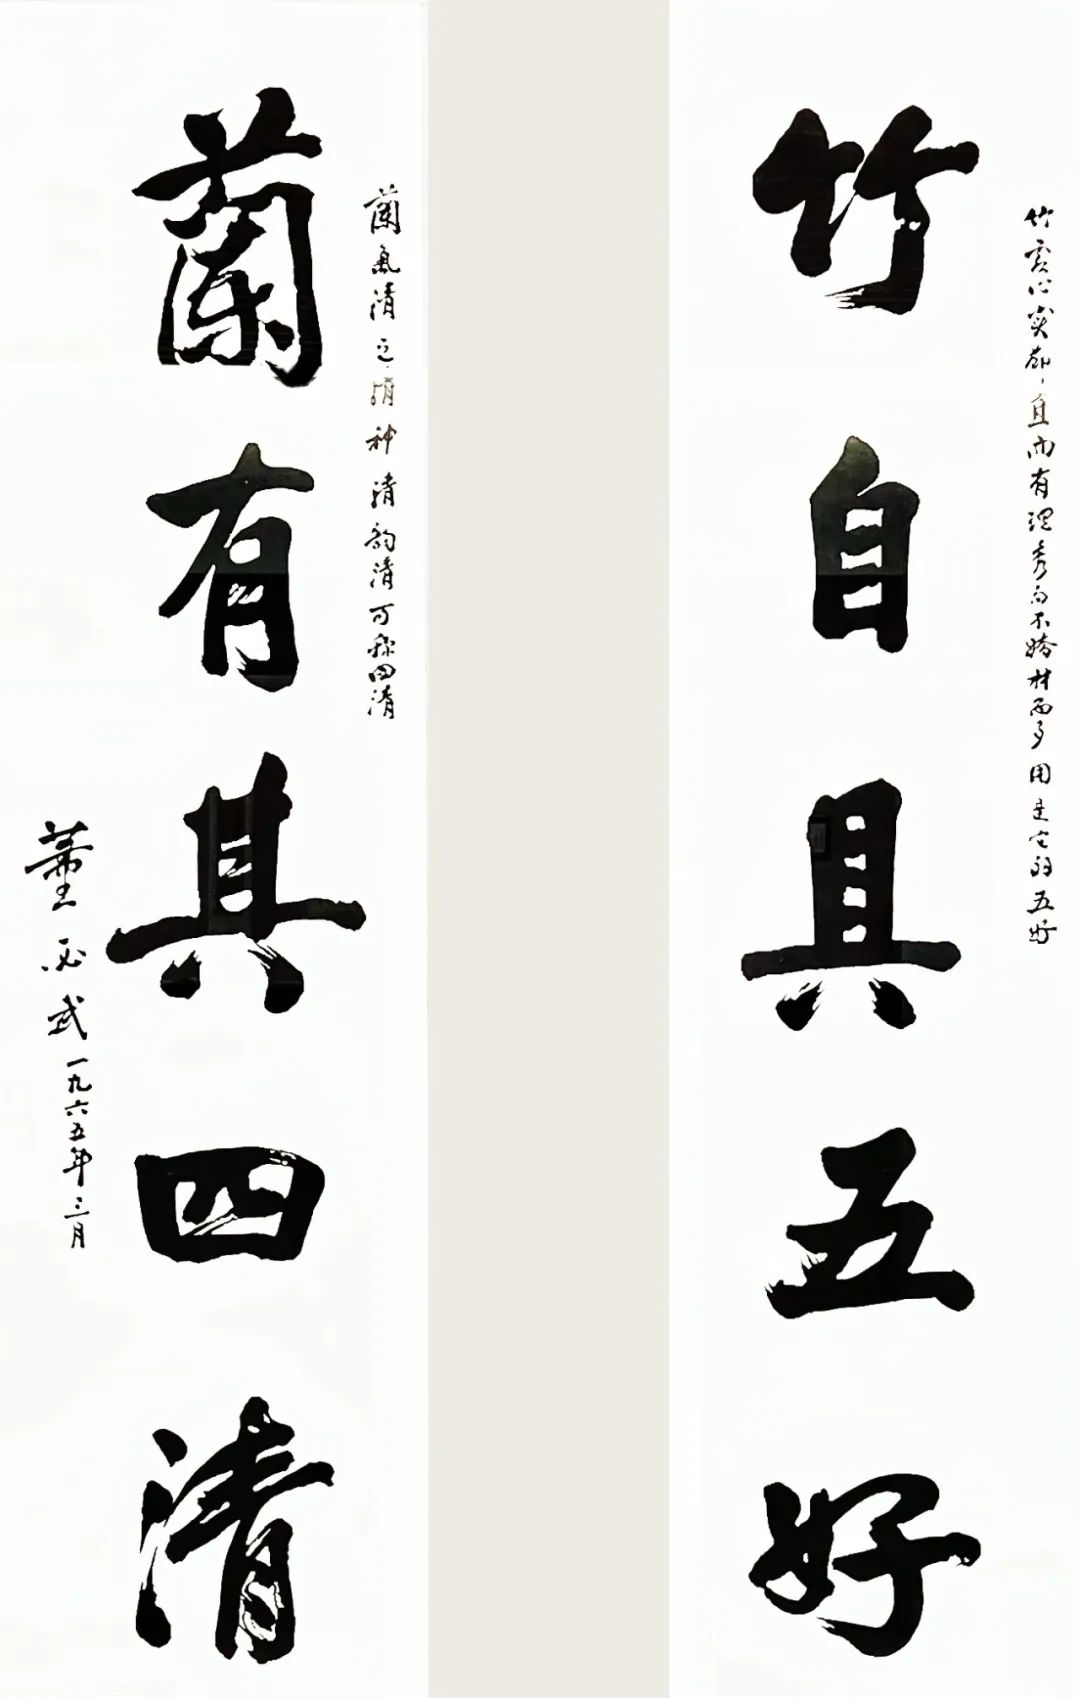 竹虚心実節直而有理秀而不娇材而多用是它的五好
竹自具五好
蘭氣清色清神清韵清可称四清
蘭有其四清
董必武一九六五年三月